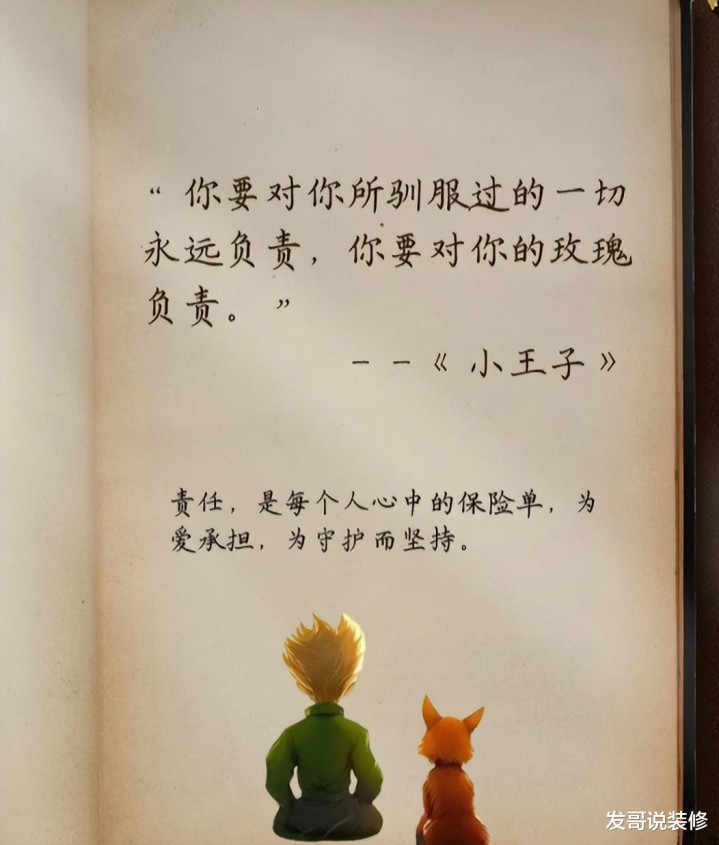 “ 你要对你所驯服过的一切
永远负责，你要对你的玫瑰
负责。”
－－《 小王子 》
责任，是每个人心中的保险单，为
爱承担，为守护而坚持。
发哥说装修